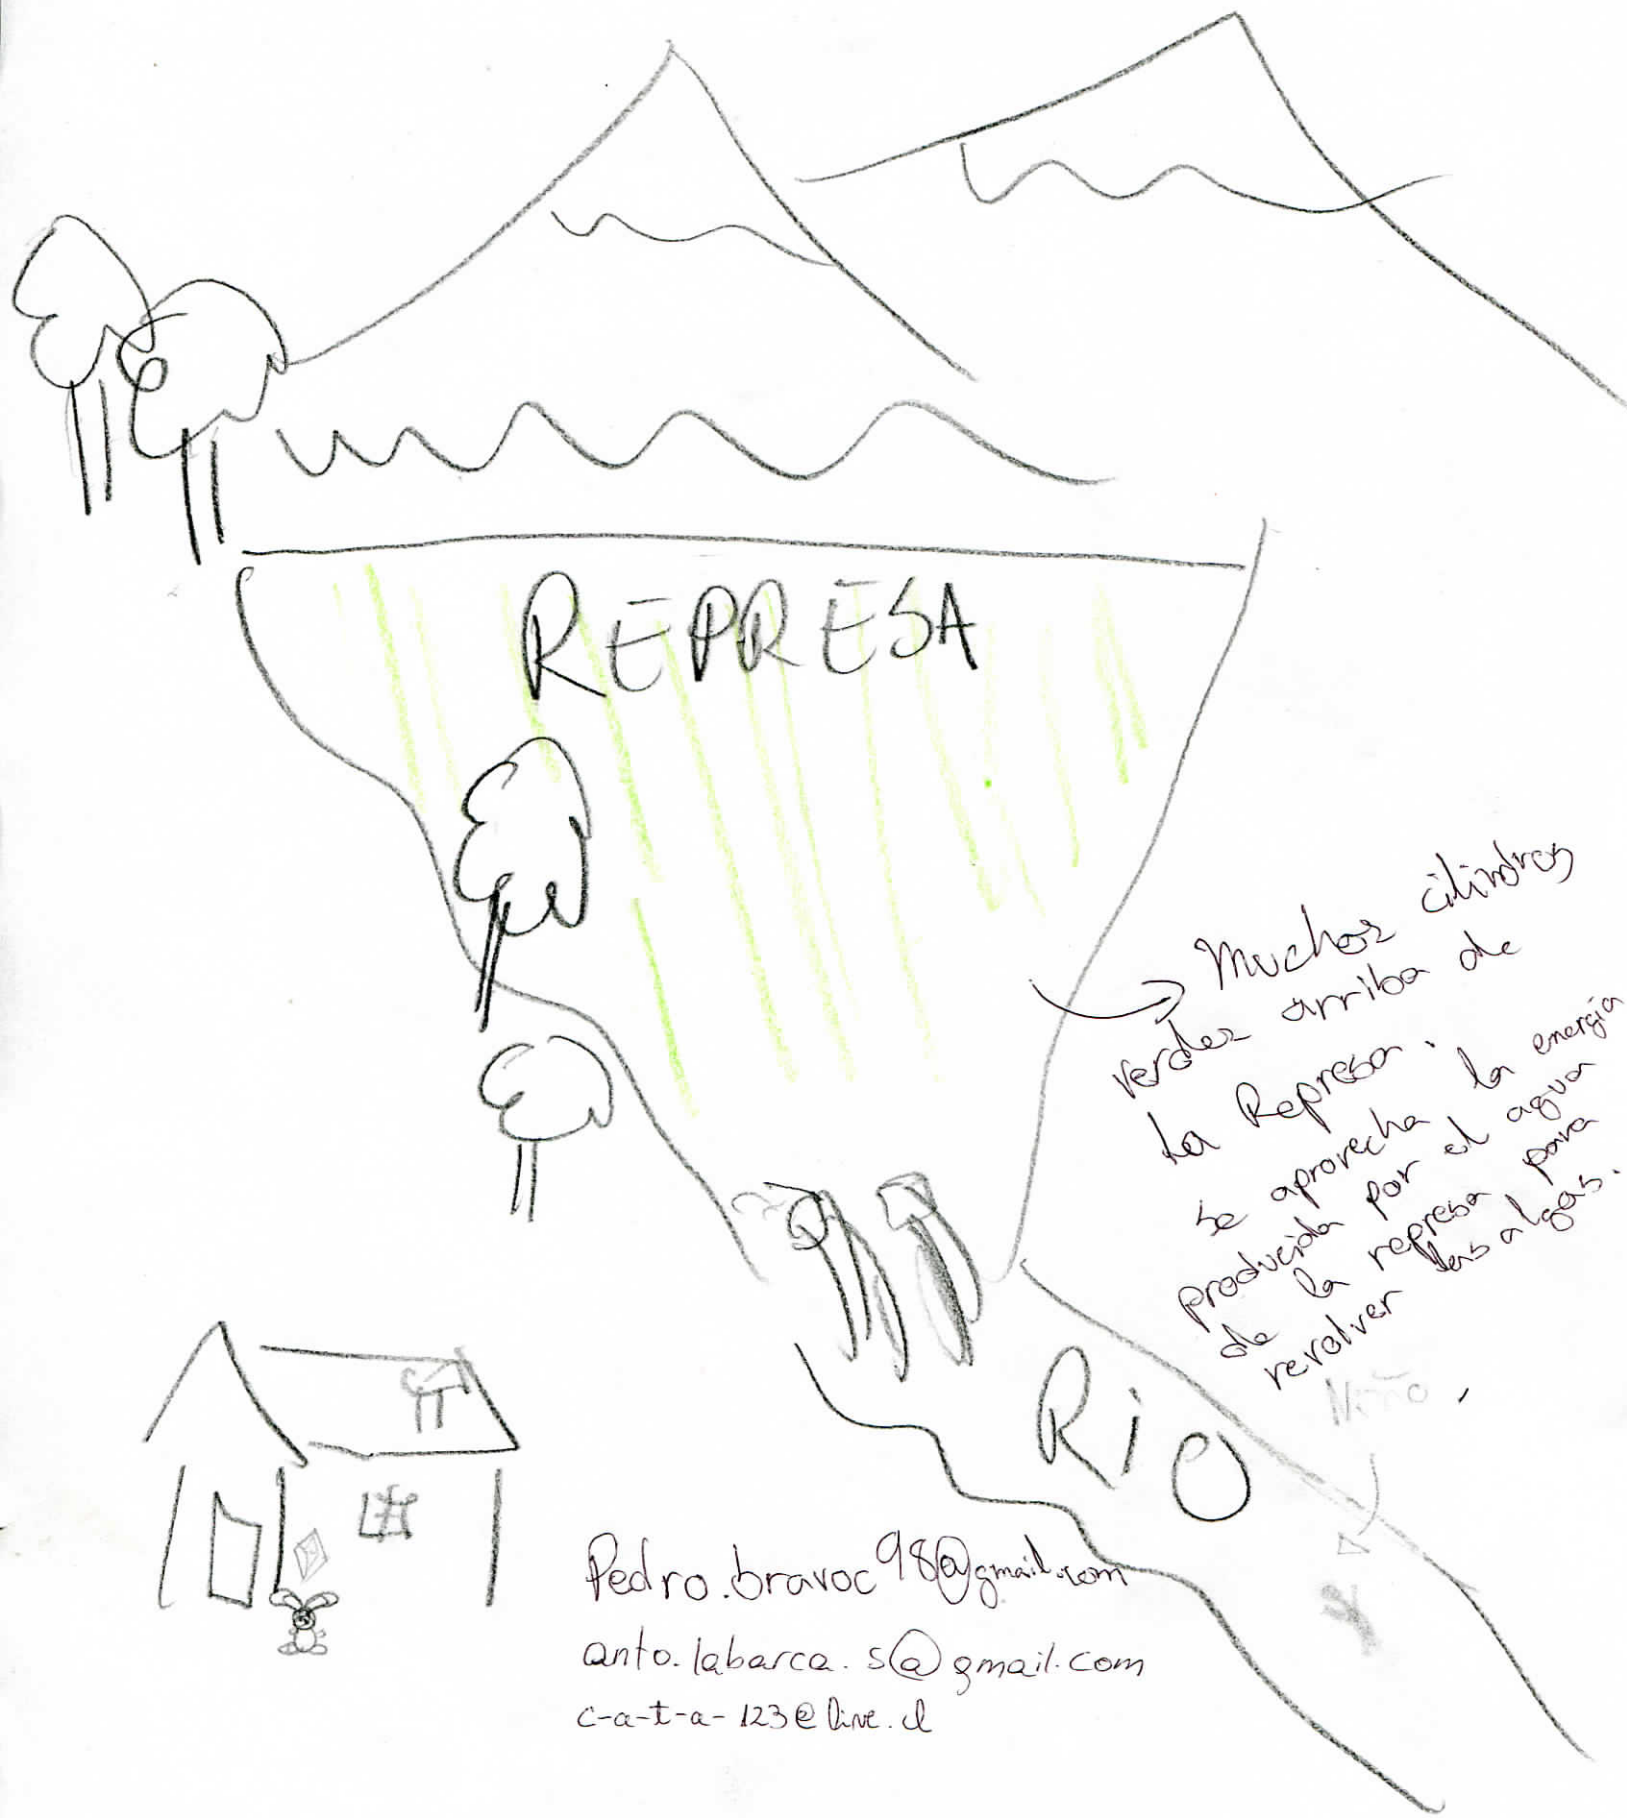 REPRESA
Muchos cilindros
verdes arriba de
la Represa.
se aprovecha la energía
producida por el agua
de la represa para
revolver las algas.
Niño
RiO
Pedro.bravoc98@gmail.com
anto.labarca.s@gmail.com
c-a-t-a-123@live.cl